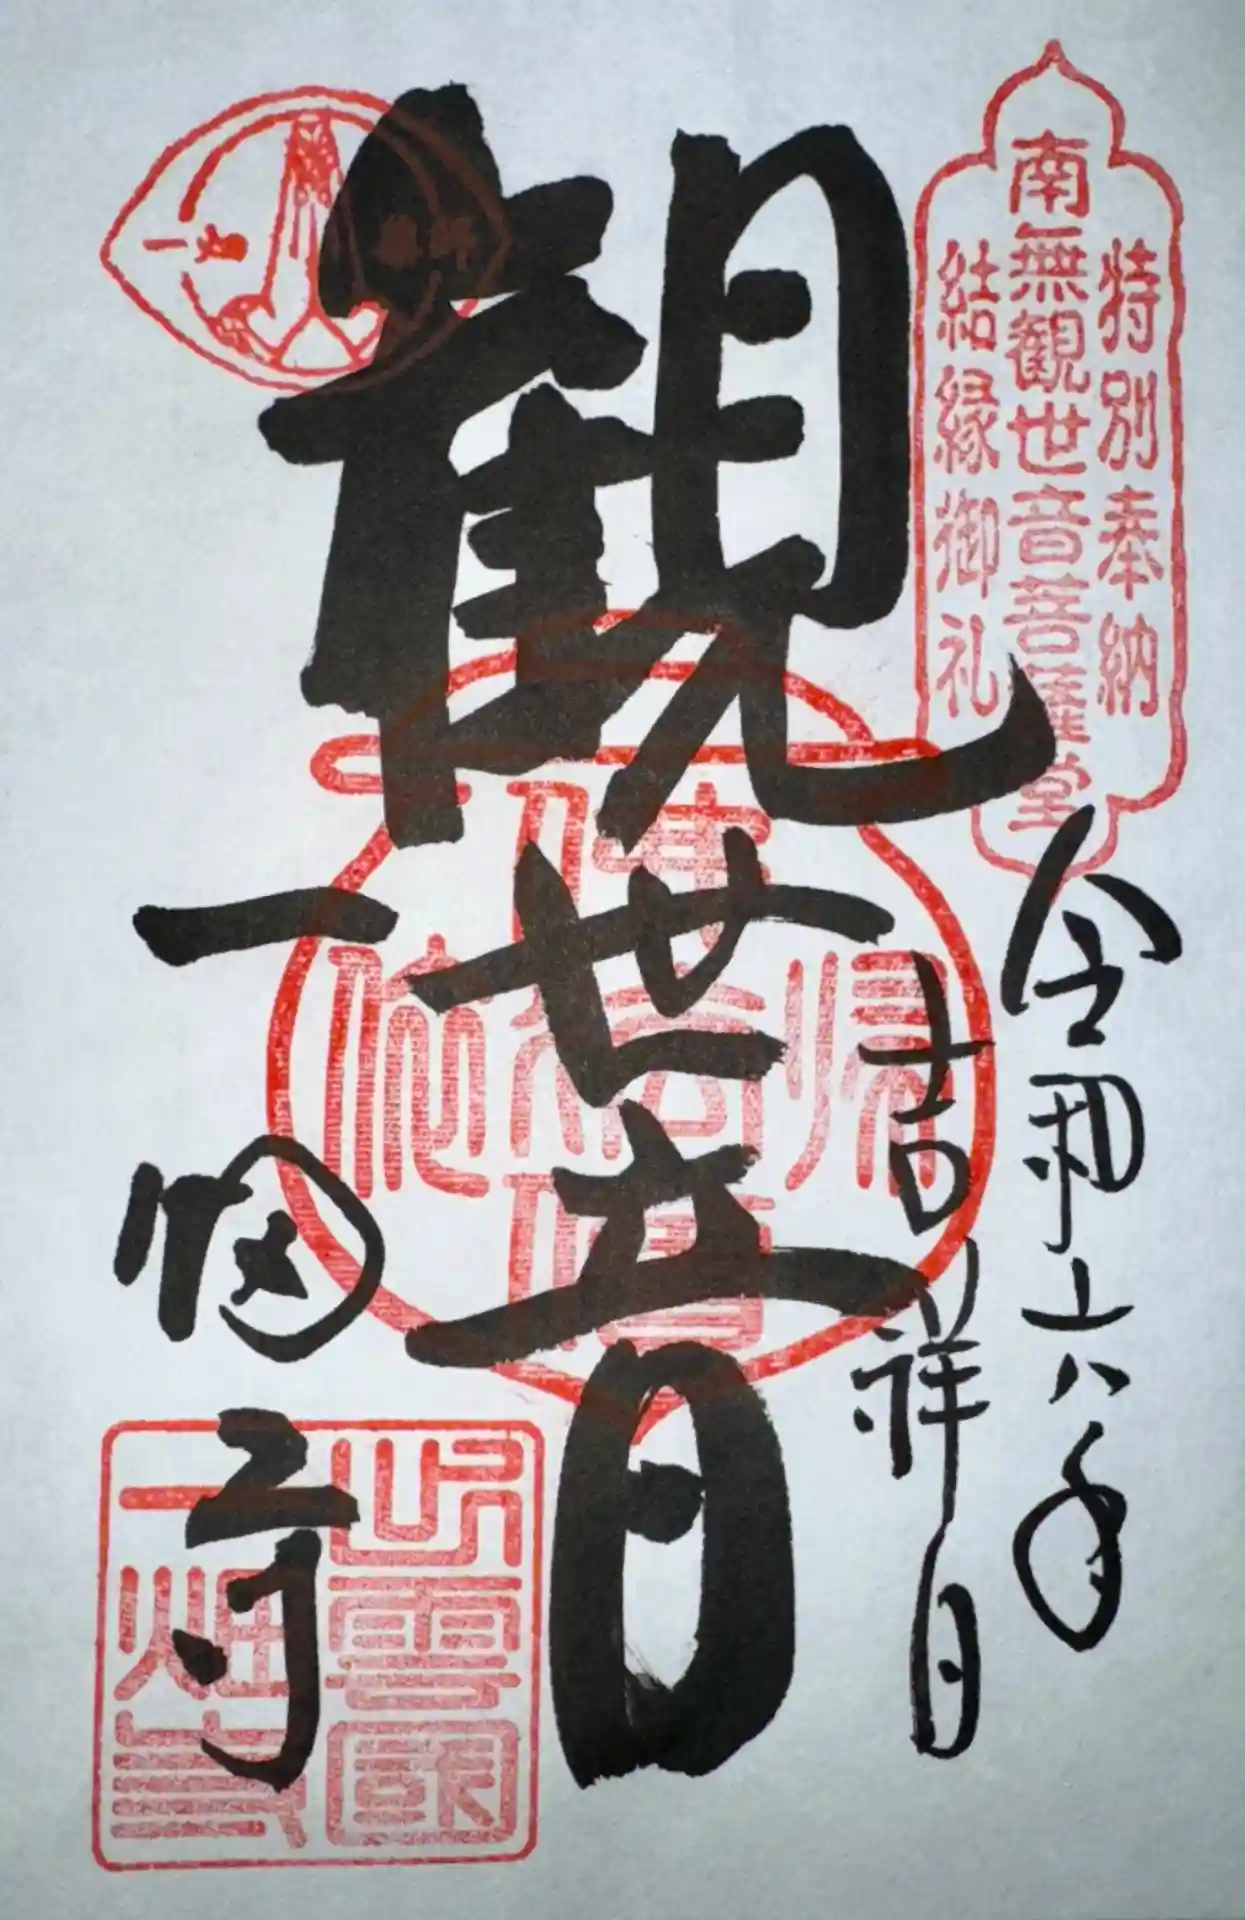 特別奉納
南無観世音菩薩堂
結縁御礼
令和六年
吉祥日
観世音
一畑寺
出雲國
一畑寺